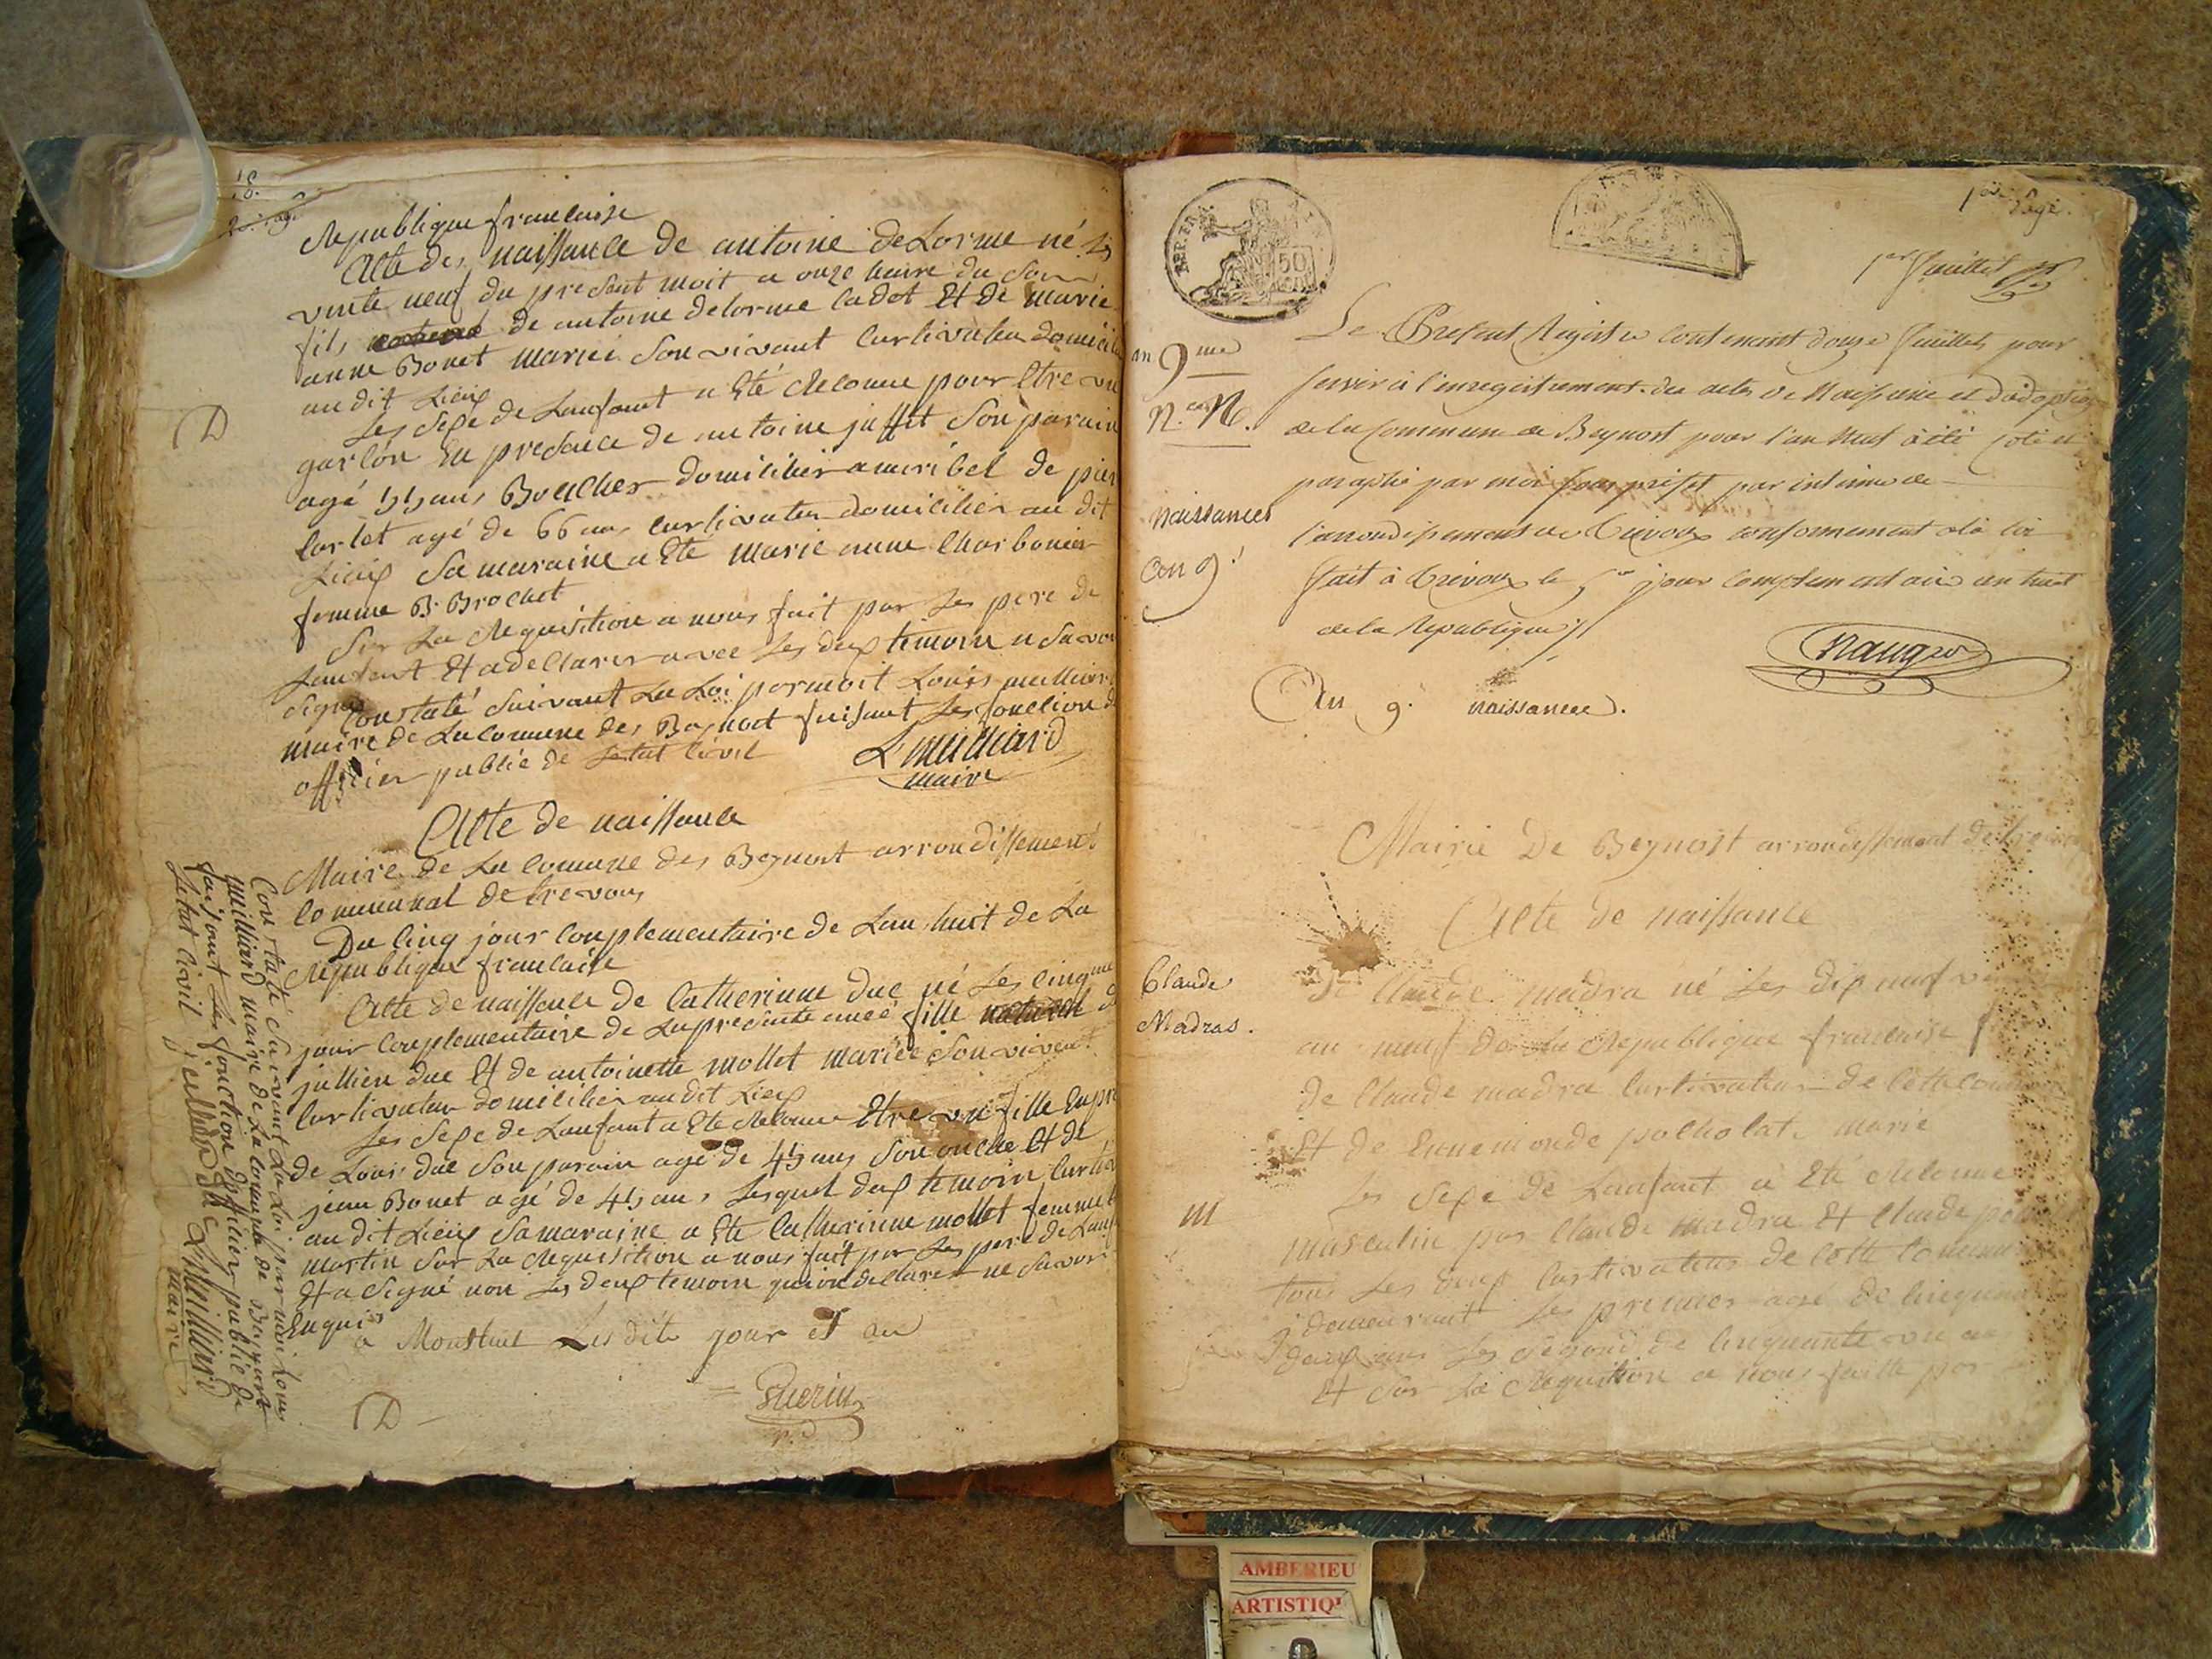 Republique francaise
Acte des naissance de antoine deLorme né Les
vinte neuf du presant moit a onze heure du soir
fils de antoine delorme cadet Et de marie
anne Bonet mariei Souvivant Curtivateu domicili
au dit Lieux
Les Sexe de Lanfant a Eté Reconue pour Etre un
garson En presance de antoine juffet Son parain
agé ans Boucher domicilier a meribel de pier
Cortet agé de 66 ans Curtivateu domicilier au dit
Lieux Sa maraine a Ete marie anne Charbonier
femme B. Brochet
Sur La Requisition a nous fait par Les pere de
Lanfant Et a declarer avec Les deux temoin n Savoir
Signe
Constaté Suivant La Loi par moit Louis meilliard
maire de La Comune des Baynost faisant Les fonction d
officier public de Letat Civil
L meilliard
maire
D
Acte de naissance
Maire de La Comune des Beynost arrondissement
Comunal de trevoux
Du Cinq jour Couplementaire de Lan huit de La
Republique francaise
Acte de naissance de Catherinne duc né Les Cinqme
jour Couplementaire de La presante anée fille
jullien duc Et de antoinette mollet mariée Souvivent
Curtivateu domicilier au dit Lieux
Les Sexe de Lanfant a Ete Reconue Etre un fille En pre
de Louis duc Son parain agé de 45 ans Son oncle Et de
jean Bonet agé de 45 ans Lesquel deux temoin Curtiv
au dit Lieux Sa maraine a Ete Catherinne mollet femme
martin Sur La Requisition a nous fait par Les pere de Lanf
Et a Signé non Les deux temoin qui on declarer ne Savoir
Enquis
a Montluel Les dits jour et an
Guerin
D
Constaté Suivant La Loi par moi Louis
meilliard maire de La Comune de Baynost
faisant Les fonction dofficier public de
Letat Civil jullien duc L meilliard
maire
1er page
1er feuillet
REP. FRA.
50
an 9me
Le Present Registre contenant douze feuillets pour
servir à l'enregistrement des actes de Naissance et d'adoption
de la Commune de Beynost pour l'an Neuf à été coté et
paraphé par moi Sous préfet par intérim de
l'arrondissement de Trévoux conformement à la loi
fait à Trévoux le 5e jour complementaire an huit
de la République
Naissances
an 9.
An 9. naissances.
Mairie De Beynost arrondissement de trevoux
Acte de naissance
Claude
Madras.
De Claude madra né Les dix neuf
an neuf de La Republique francaise
de Claude madra Curtivateur de Cette Comu
Et de Ennemonde pocholat mariè
Les Sexe de Lanfant a Eté Reconue
m
masculin par Claude madra Et Claude
tous Les deux Curtivateurs de Cette Comune
y demeurant Les premier agé de Cinquante
deux ans Les Segond de Cinquante un ans
Et Sur La Requisition a nous faitte par
AMBERIEU
ARTISTIQ